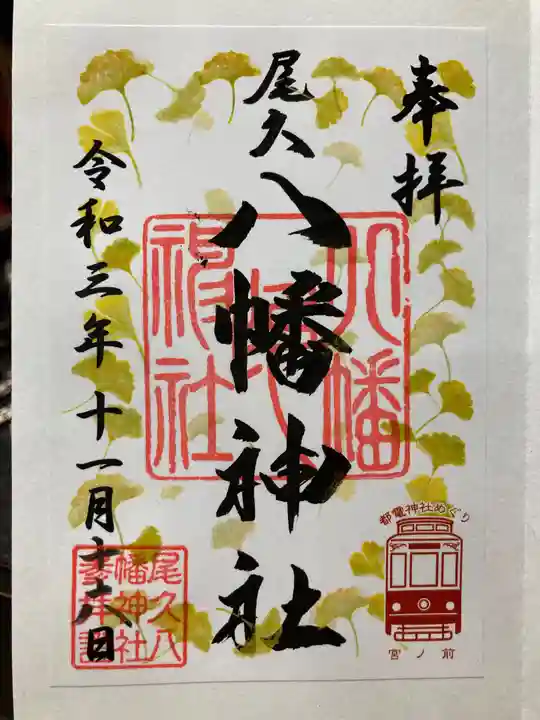 奉拝
尾久
八幡神社
令和三年十一月十六日
八幡
神社
都電神社めぐり
宮ノ前
尾久八
幡神社
参拝証